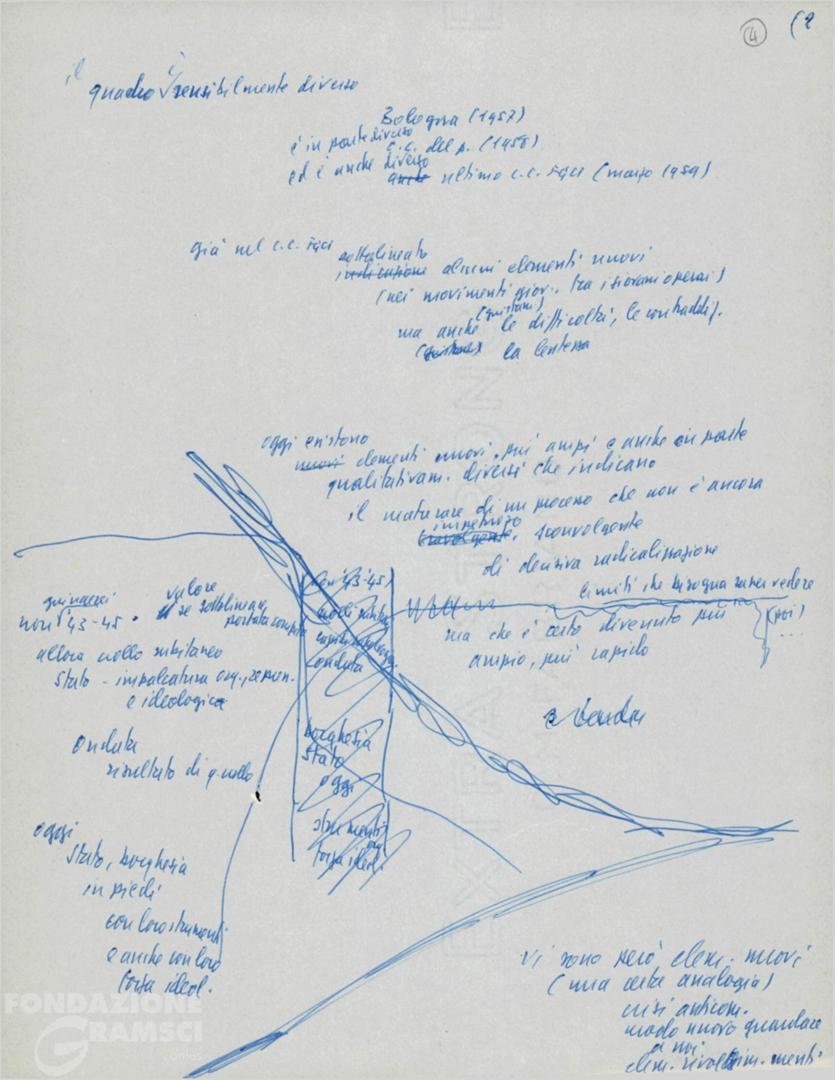 (2
4
il
quadro è sensibilmente diverso
Bologna (1957)
è in parte diverso
c.c. del p. (1958)
ed è anche diverso
anche ultimo c.c. FGCI (marzo 1959)
già nel c.c. FGCI sottolineato
indicazione alcuni elementi nuovi
(nei movimenti giov. tra i giovani operai)
ma anche le difficoltà, le contraddiz.
la lentezza
oggi esistono
nuovi elementi nuovi, più ampi e anche in parte
qualitativam. diversi che indicano
il maturare di un processo che non è ancora
impetuoso
travolgente, sconvolgente
di decisiva radicalizzazione
limiti che bisogna saper vedere
ma che è certo divenuto più (poi)
ampio, più rapido
...
non '43-45. valore
se sottolinea
portata
allora crollo subitaneo
Stato - impalcatura org.,
e ideologica
Ondata
risultato di q. crollo
non '43-45
ondata
borghesia
Stato
oggi
strumenti
forza ideol.
oggi
Stato, borghesia
in piedi
con loro strumenti
e anche con loro
forza ideol.
vi sono però elem. nuovi
(una certa analogia)
crisi anticom.
modo nuovo guardare
a noi
FONDAZIONE
GRAMSCI
EXTRA STRONG